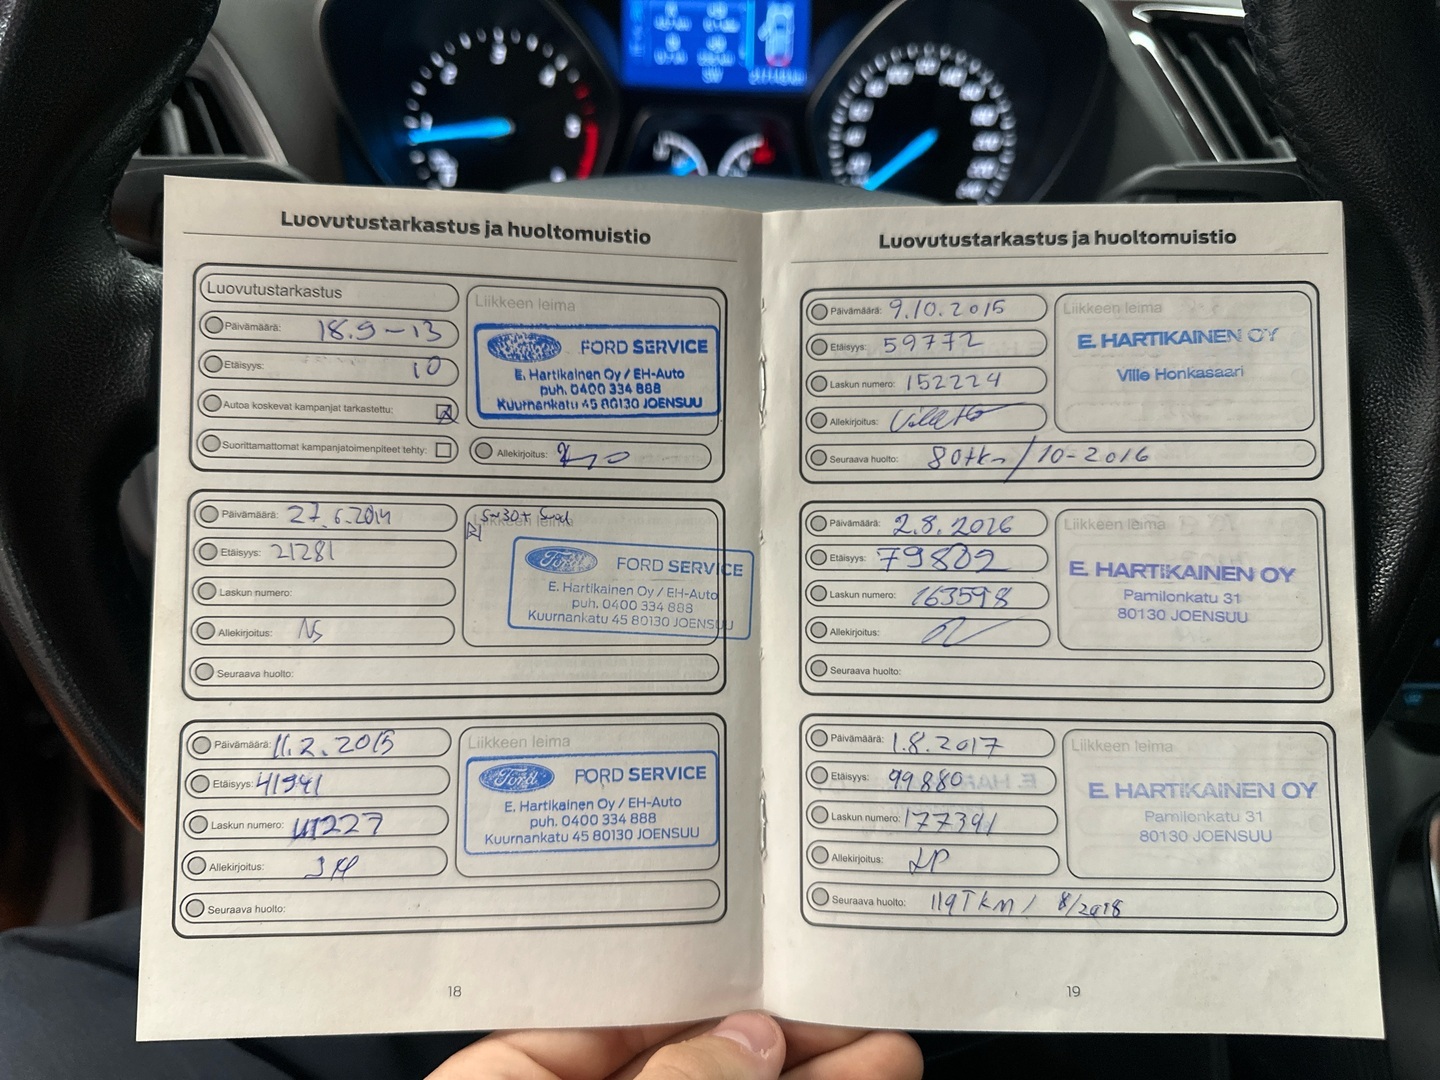 Luovutustarkastus ja huoltomuistio
Luovutustarkastus
Päivämäärä: 18.9-13
Etäisyys: 10
Autoa koskevat kampanjat tarkastettu:
Suorittamattomat kampanjatoimenpiteet tehty:
Liikkeen leima
FORD SERVICE
E. Hartikainen Oy / EH-Auto
puh. 0400 334 888
Kuurnankatu 45 80130 JOENSUU
Allekirjoitus:
Päivämäärä: 27.6.2014
Etäisyys: 21281
Laskun numero:
Allekirjoitus: NS
Seuraava huolto:
Liikkeen leima
Ford
FORD SERVICE
E. Hartikainen Oy / EH-Auto
puh. 0400 334 888
Kuurnankatu 45 80130 JOENSUU
Päivämäärä: 11.2.2015
Etäisyys: 41941
Laskun numero:
Allekirjoitus:
Seuraava huolto:
Liikkeen leima
Ford
FORD SERVICE
E. Hartikainen Oy / EH-Auto
puh. 0400 334 888
Kuurnankatu 45 80130 JOENSUU
18
Luovutustarkastus ja huoltomuistio
Päivämäärä: 9.10.2015
Etäisyys: 59772
Laskun numero: 152224
Allekirjoitus:
Seuraava huolto: 80tkm/10-2016
Liikkeen leima
E. HARTIKAINEN OY
Ville Honkasaari
Päivämäärä: 2.8.2016
Etäisyys: 79802
Laskun numero: 163598
Allekirjoitus:
Seuraava huolto:
Liikkeen leima
E. HARTIKAINEN OY
Pamilonkatu 31
80130 JOENSUU
Päivämäärä: 1.8.2017
Etäisyys: 99880
Laskun numero: 177391
Allekirjoitus: LP
Seuraava huolto: 119TKM / 8/2018
Liikkeen leima
E. HARTIKAINEN OY
Pamilonkatu 31
80130 JOENSUU
19